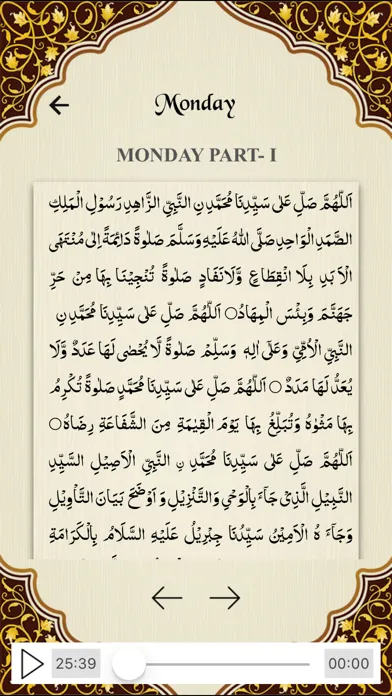 Monday
MONDAY PART- I
اَللّٰهُمَّ صَلِّ عَلٰى سَيِّدِنَا مُحَمَّدِنِ النَّبِيِّ الزَّاهِدِ رَسُوْلِ الْمَلِكِ
الصَّمَدِ الْوَاحِدِ صَلَّى اللّٰهُ عَلَيْهِ وَسَلَّمَ صَلٰوةً دَائِمَةً اِلٰى مُنْتَهَى
الْاَبَدِ بِلَا انْقِطَاعٍ وَّلَانَفَادٍ صَلٰوةً تُنْجِيْنَا بِهَا مِنْ حَرِّ
جَهَنَّمَ وَبِئْسَ الْمِهَادُ○ اَللّٰهُمَّ صَلِّ عَلٰى سَيِّدِنَا مُحَمَّدِنِ
النَّبِيِّ الْاُمِّيِّ وَعَلٰى اٰلِهٖ وَسَلِّمْ صَلٰوةً لَّا يُحْصٰى لَهَا عَدَدٌ وَّلَا
يُعَدُّ لَهَا مَدَدٌ○ اَللّٰهُمَّ صَلِّ عَلٰى سَيِّدِنَا مُحَمَّدٍ صَلٰوةً تُكْرِمُ
بِهَا مَثْوٰهُ وَتُبَلِّغُ بِهَا يَوْمَ الْقِيٰمَةِ مِنَ الشَّفَاعَةِ رِضَاهُ○
اَللّٰهُمَّ صَلِّ عَلٰى سَيِّدِنَا مُحَمَّدِ نِ النَّبِيِّ الْاَصِيْلِ السَّيِّدِ
النَّبِيْلِ الَّذِيْ جَآءَ بِالْوَحْيِ وَالتَّنْزِيْلِ وَ اَوْضَحَ بَيَانَ التَّاْوِيْلِ
وَجَآءَ هُ الْاَمِيْنُ سَيِّدُنَا جِبْرِيْلُ عَلَيْهِ السَّلَامُ بِالْكَرَامَةِ
25:39
00:00